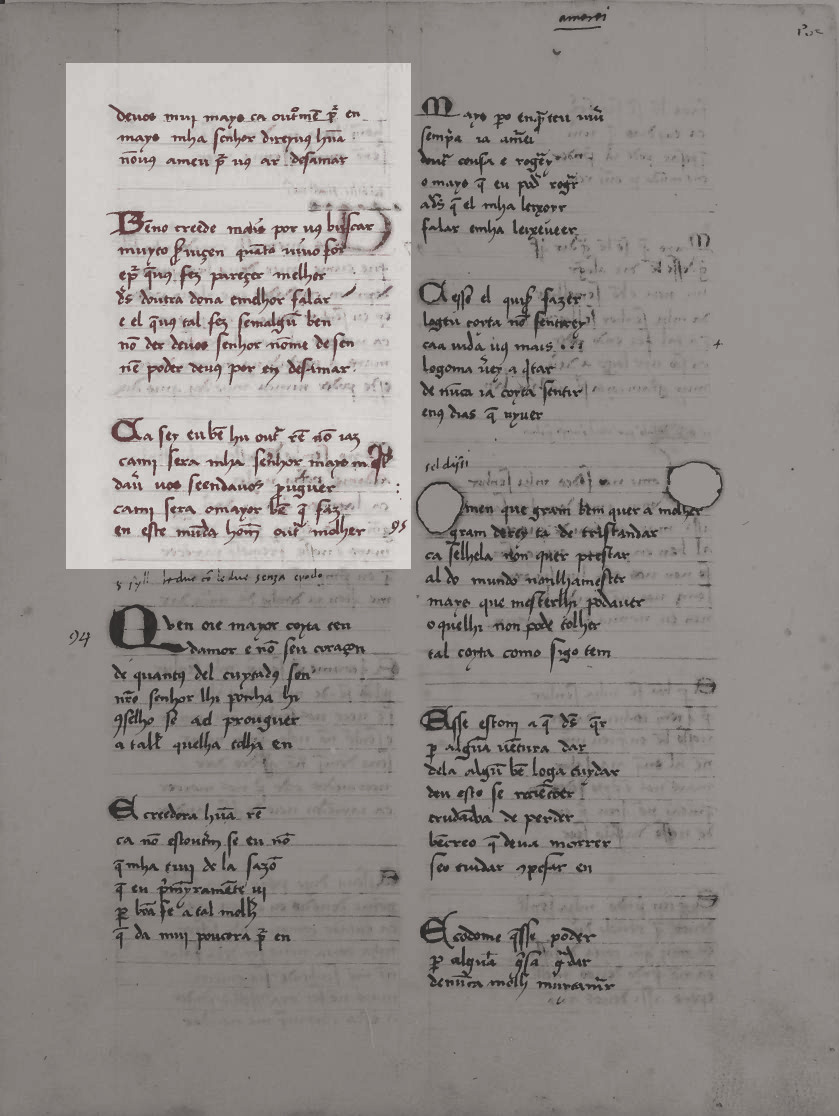 amorei
deuos mui mays ca out°mẽ p̃ en
mays mha senhor direyuꝯ hũa
nõuꝯ amey p̃ uꝯ ar desamar
Beno creede mais por uꝯ buscar
muyto uiuçen quãta uiuo for
ep̃ q̃uꝯ fez pareçer melhor
d̃s doutra dona emelhor falar
e el q̃uꝯ tal fez semalgũ ben
nõ der deuos senhor nome desen
nẽ poder deuꝯ por en desamar
Ca sey eubẽ hu out̃ rẽ nõ iaz
cami sera mha senhor mays m
dau̇ uos seendauos prouguer
cami sera omayor bẽ q̃ faz
en este mũdo homẽ out̃ molher
95
le due cõ le due senza
94
Quen oie mayor coyta ten
damor e nõ seu coraçon
de quantꝯ del cuytadꝯ son
nr̃o senhor lhi ponha hi
ꝯselho se ael prouguer
a tall quelha tolha en
E creedora hũa rẽ
ca nõ estou se eu nõ
q̃ mha tiui de la sazõ
q̃ eu p̃meyramẽte ui
ꝑ bõa fe a tal molh̃
q̃ da mui poucora p̃ en
Mays po enq̃teu uiũ
sempa ia am̃ei
dout̃ cousa e roguey
o mays q̃ eu pod̃ rog̃r
ad̃s q̃ el mha leixeyr
falar emha leixeueer
E esse el quis fazer
logeu coyta nõ sentirey
caa uida uꝯ mais
logoma u̇ey a q̃tar
de nũca ia coyta sentir
enꝯ dias q̃ uyuer
rel dõ
omen que gram bem quer a molher
gram dereyta de tristandar
ca selhela non quer prestar
al do mundo nonlhiamester
mays que mesterlhi podauer
oquelhi non pode tolher
tal coyta como sigo tem
Esse estom a q̃ d̃s q̃r
ꝑ algũa uẽtura dar
dela algũ bẽ loga cuydar
deu esto se recẽeber
eruda de perder
bẽcreo q̃ deua morrer
seo cuidar ꝯpesar en
Ecodome q̃sse poder
ꝑ algũa q̃sa g̃dar
denũca molh̃